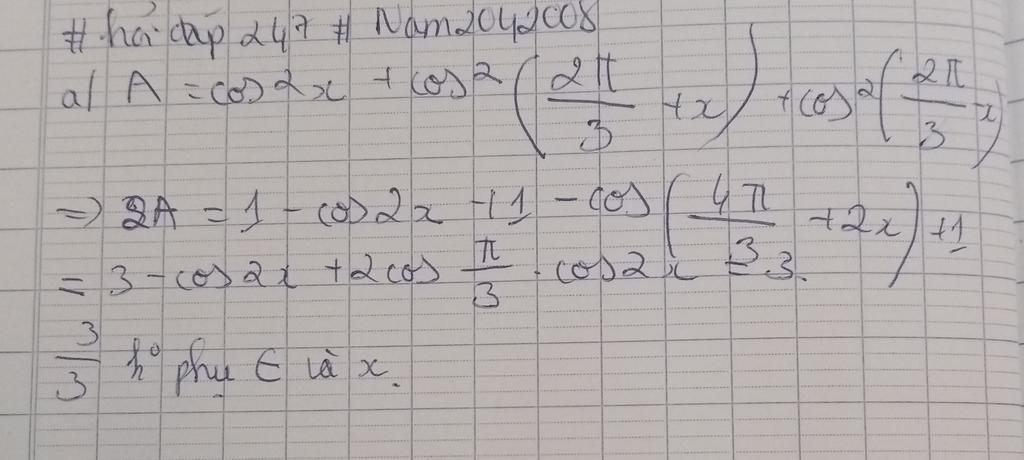 # hỏi đáp 247 # Nam2042008
a/ A = cos2x + cos²(2π/3 + x) + cos²(2π/3 - x)
=> 2A = 1 - cos2x + 1 - cos(4π/3 + 2x) + 1
= 3 - cos2x + 2cos π/3 . cos2x = 3.
3/3 ko phụ ∈ là x.